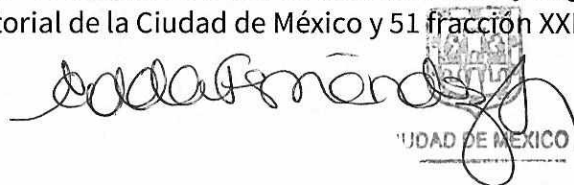 torial de la Ciudad de México y 51 fracción XXI
UDAD DE MÉXICO